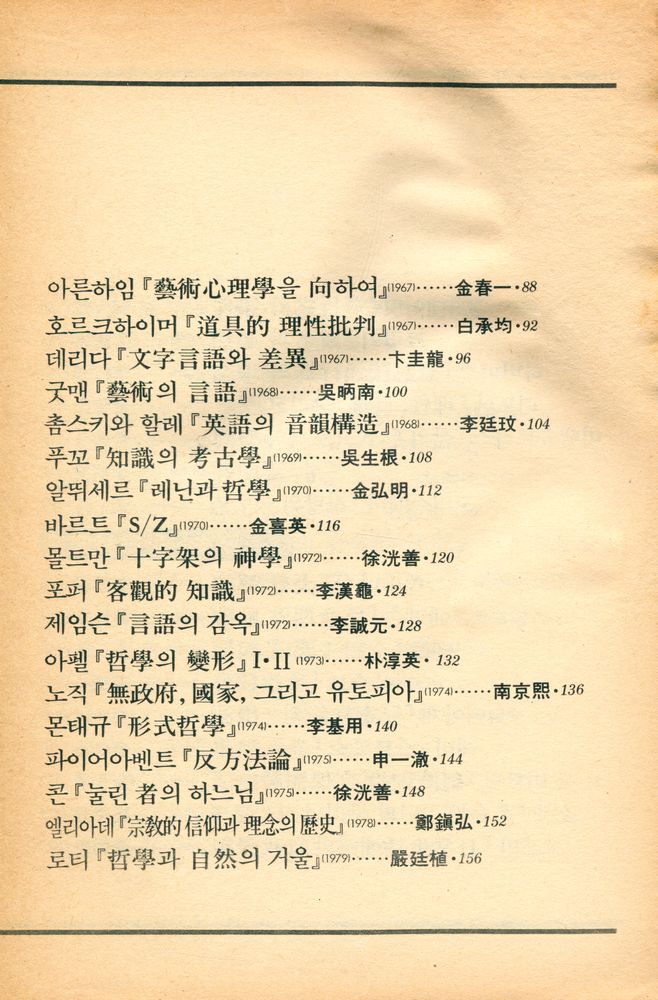 아른하임『藝術心理學을 向하여』(1967)……金春一·88
호르크하이머『道具的 理性批判』(1967)……白承均·92
데리다『文字言語와 差異』(1967)……卞圭龍·96
굿맨『藝術의 言語』(1968)……吳昞南·100
촘스키와 할레『英語의 音韻構造』(1968)……李廷玟·104
푸꼬『知識의 考古學』(1969)……吳生根·108
알뛰세르『레닌과 哲學』(1970)……金弘明·112
바르트『S/Z』(1970)……金喜英·116
몰트만『十字架의 神學』(1972)……徐洸善·120
포퍼『客觀的 知識』(1972)……李漢龜·124
제임슨『言語의 감옥』(1972)……李誠元·128
아펠『哲學의 變形』I·II (1973)……朴淳英· 132
노직『無政府, 國家, 그리고 유토피아』(1974)……南京熙·136
몬태규『形式哲學』(1974)……李基用·140
파이어아벤트『反方法論』(1975)……申一澈·144
콘『눌린 者의 하느님』(1975)……徐洸善·148
엘리아데『宗敎的 信仰과 理念의 歷史』(1978)……鄭鎭弘·152
로티『哲學과 自然의 거울』(1979)……嚴廷植·156